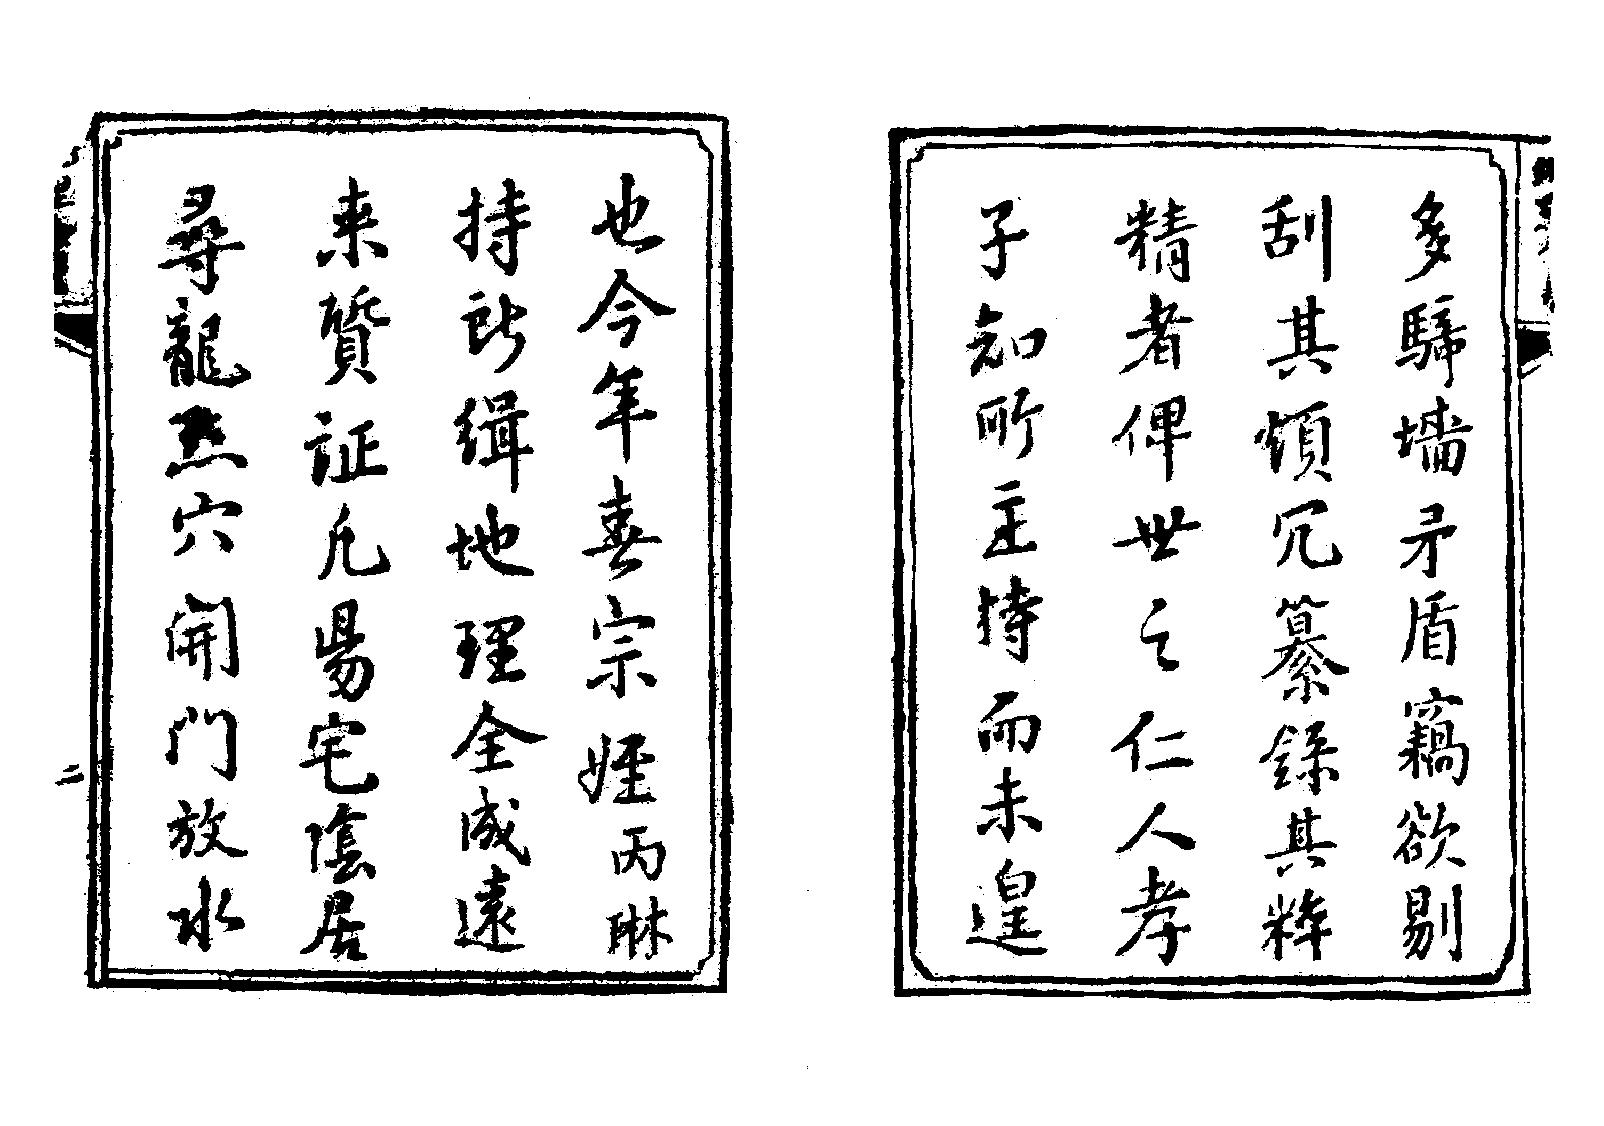 多騲墻矛盾竊欲剔
刮其煩冗纂錄其粹
精者俾世之仁人孝
子知所主持而未遑
也今年春宗姪丙琳
持所緝地理全成遠
来質証凢昜宅陰居
尋龍㸃穴開門放水
二